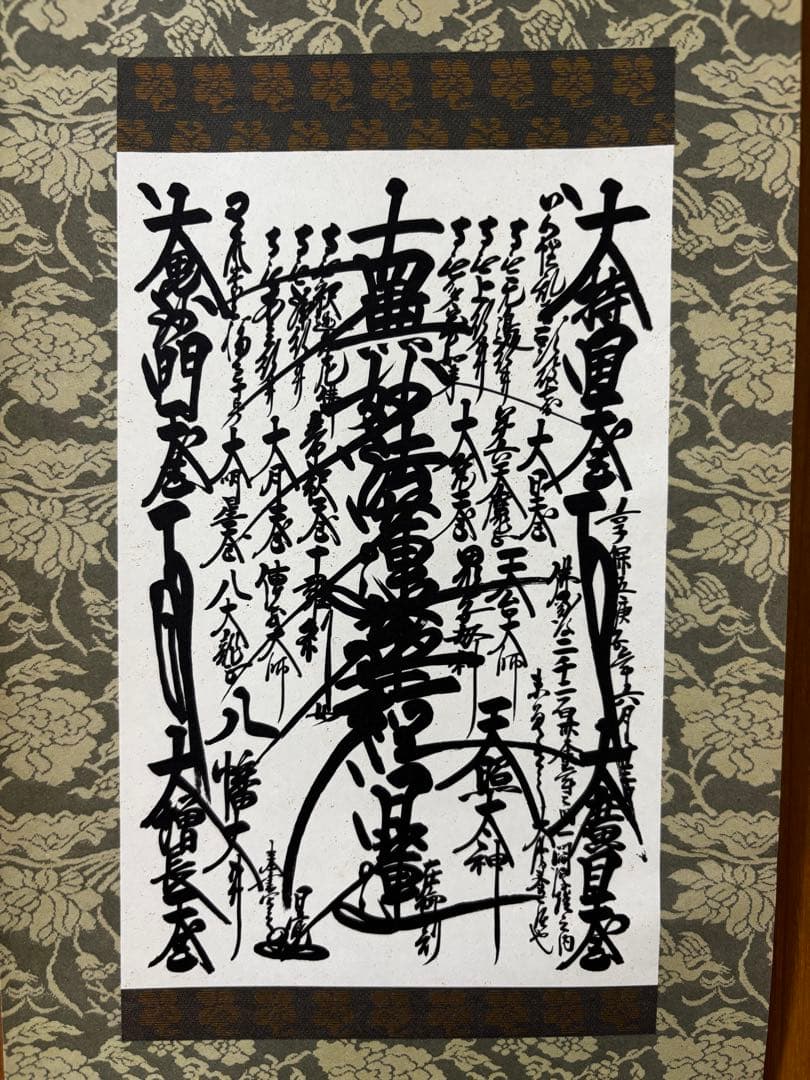 大持国天王
大廣目天王
享保五庚子年六月十三日
若悩乱者頭破七分
大日天王
佛滅後二千二百三十余年之間一閻浮提之内
未曾有之大漫荼羅也
南無無邊行菩薩
南無上行菩薩
南無多宝如来
第六天魔王
大梵天王
天台大師
鬼子母神
天照太神
南無妙法蓮華経
日蓮
在御判
南無釈迦牟尼佛
南無浄行菩薩
南無安立行菩薩
帝釈天王
大月天王
大明星天王
十羅刹女
傳教大師
八大龍王
八幡大菩薩
有供養者福過十号
奉書写之
日寛
大毘沙門天王
大增長天王